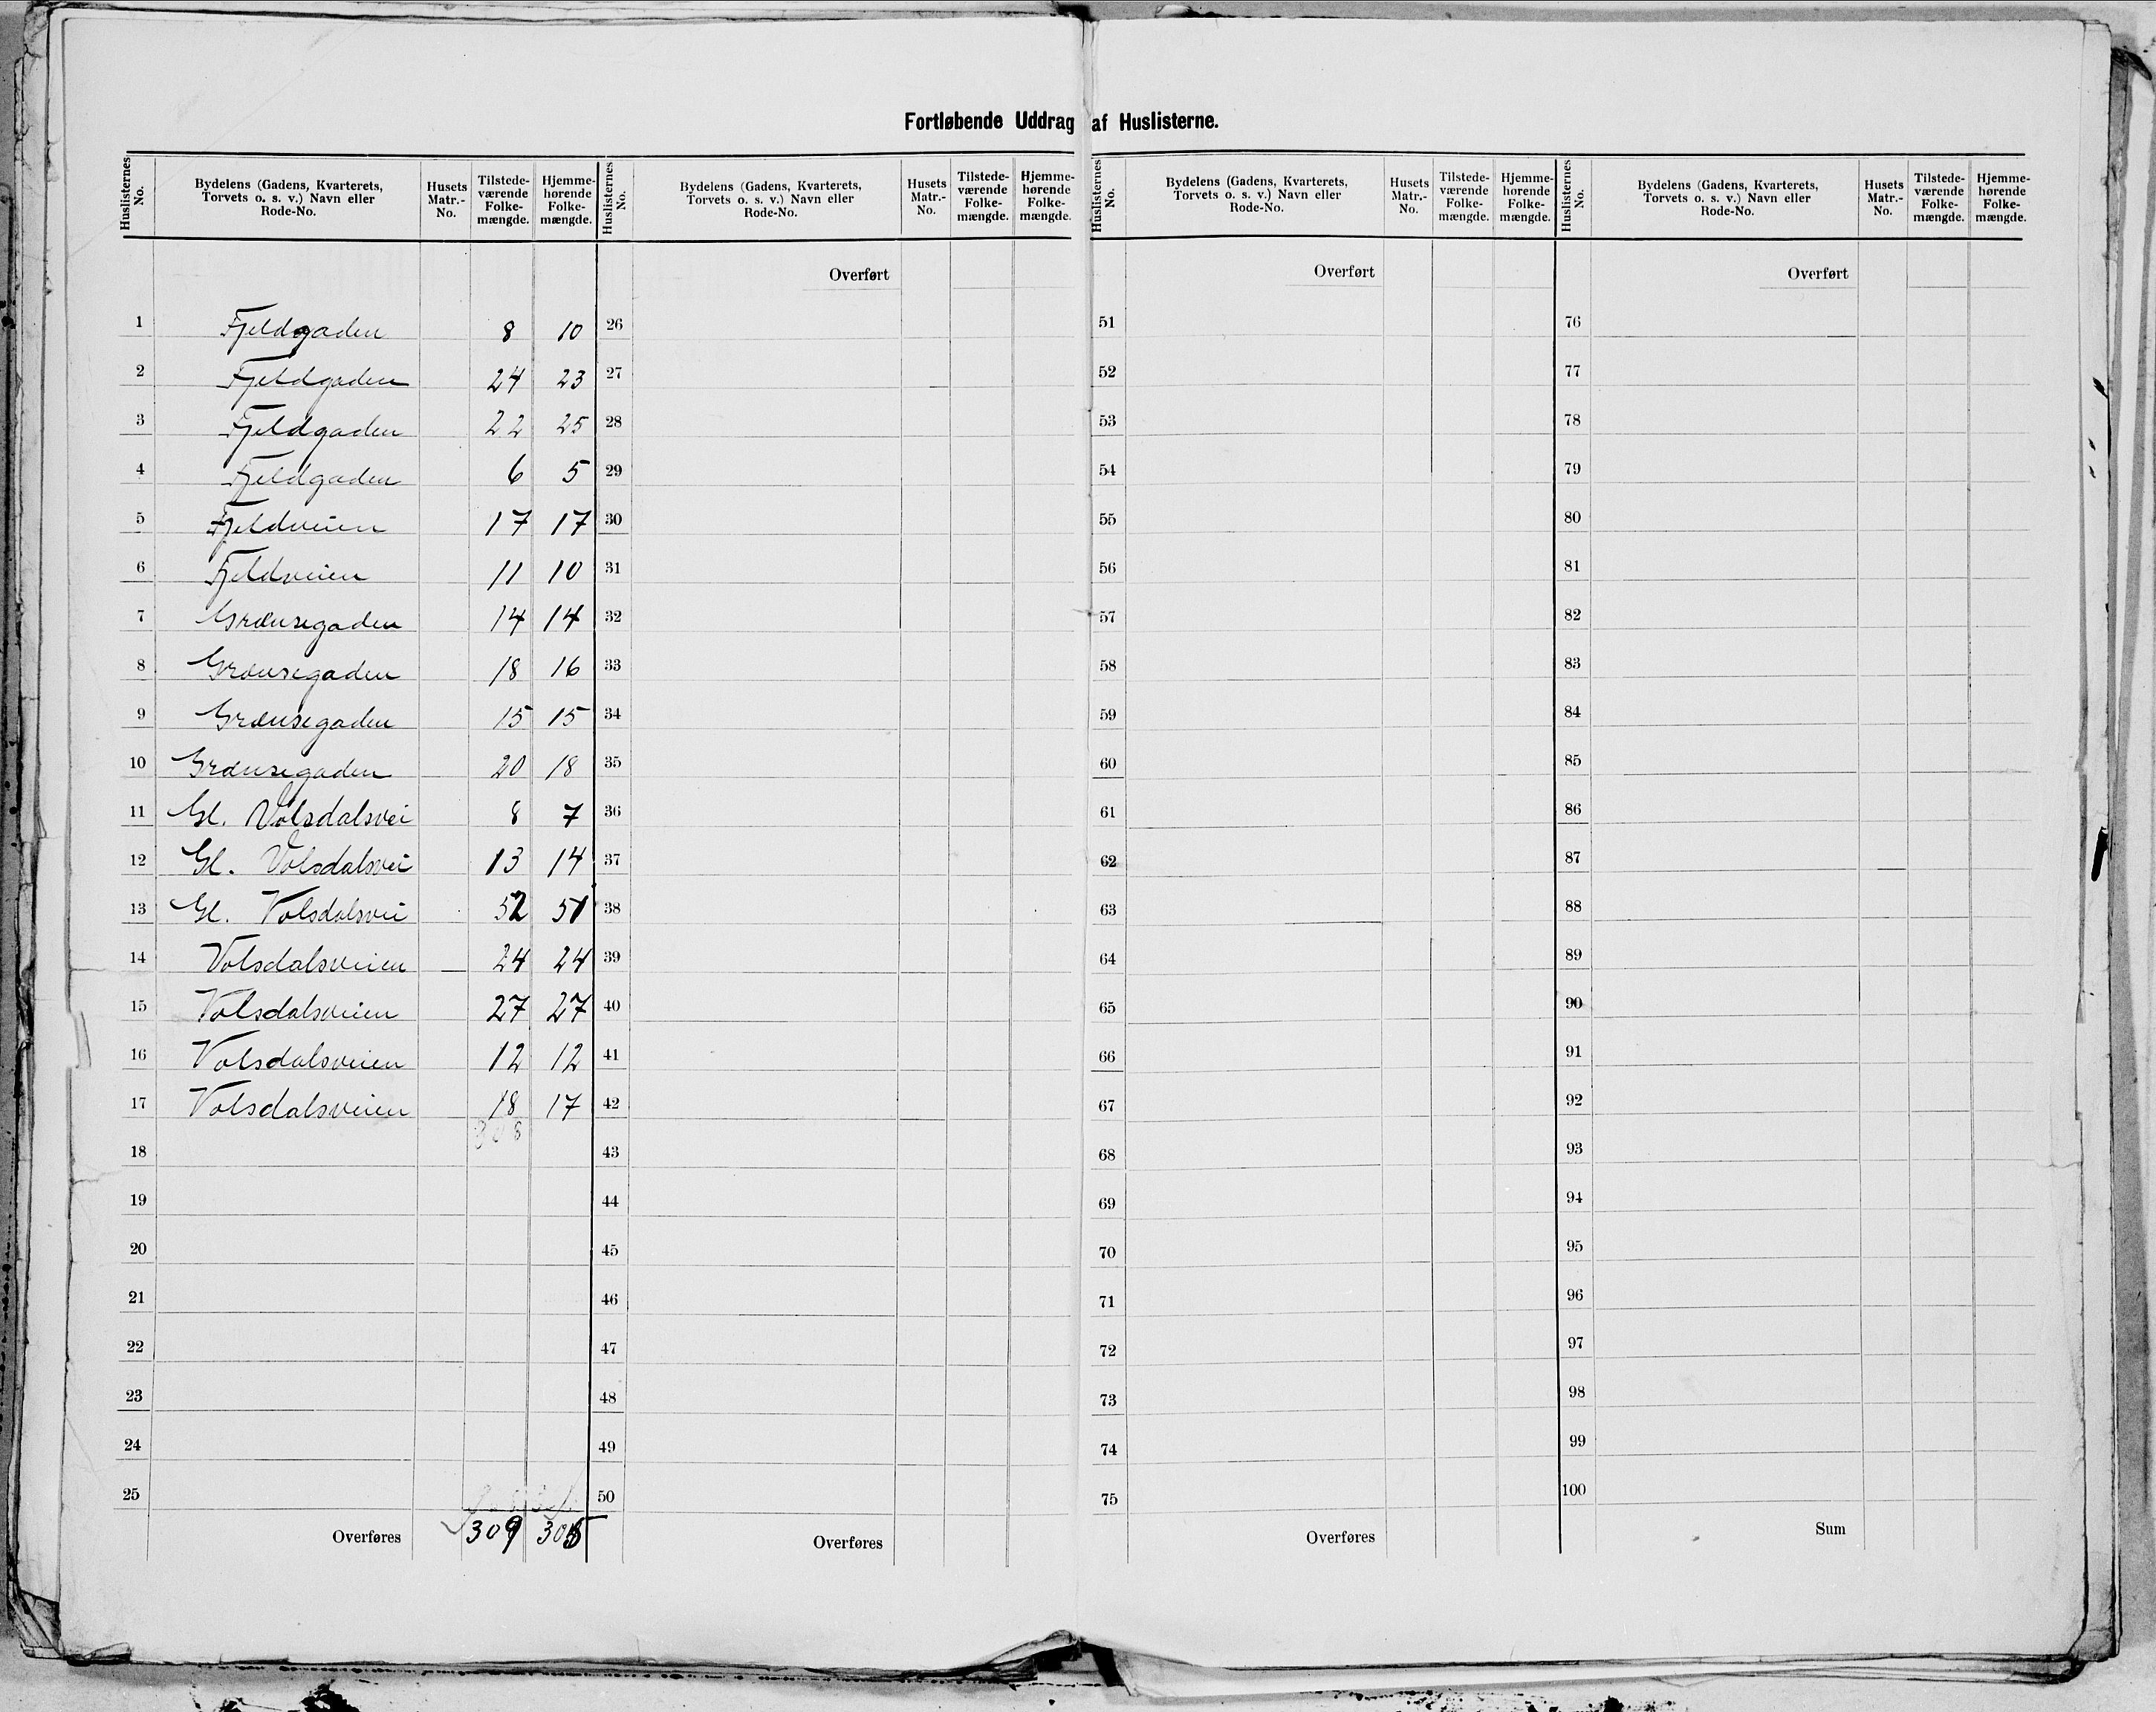 Fortløbende Uddrag af Huslisterne.
Huslisternes No. Bydelens (Gadens, Kvarterets, Torvets o. s. v.) Navn eller Rode-No. Husets Matr.-No. Tilstedeværende Folkemængde. Hjemmehørende Folkemængde.
1 Fjeldgaden 8 10
2 Fjeldgaden 24 23
3 Fjeldgaden 22 25
4 Fjeldgaden 6 5
5 Fjeldveien 17 17
6 Fjeldveien 11 10
7 Grænsegaden 14 14
8 Grænsegaden 18 16
9 Grænsegaden 15 15
10 Grænsegaden 20 18
11 Gl. Volsdalsvei 8 7
12 Gl. Volsdalsvei 13 14
13 Gl. Volsdalsvei 52 51
14 Volsdalsveien 24 24
15 Volsdalsveien 27 27
16 Volsdalsveien 12 12
17 Volsdalsveien 18 17
308
18
19
20
21
22
23
24
25
Overføres 309 305
Huslisternes No. Bydelens (Gadens, Kvarterets, Torvets o. s. v.) Navn eller Rode-No. Husets Matr.-No. Tilstedeværende Folkemængde. Hjemmehørende Folkemængde.
Overført
26
27
28
29
30
31
32
33
34
35
36
37
38
39
40
41
42
43
44
45
46
47
48
49
50
Overføres
Huslisternes No. Bydelens (Gadens, Kvarterets, Torvets o. s. v.) Navn eller Rode-No. Husets Matr.-No. Tilstedeværende Folkemængde. Hjemmehørende Folkemængde.
Overført
51
52
53
54
55
56
57
58
59
60
61
62
63
64
65
66
67
68
69
70
71
72
73
74
75
Overføres
Huslisternes No. Bydelens (Gadens, Kvarterets, Torvets o. s. v.) Navn eller Rode-No. Husets Matr.-No. Tilstedeværende Folkemængde. Hjemmehørende Folkemængde.
Overført
76
77
78
79
80
81
82
83
84
85
86
87
88
89
90
91
92
93
94
95
96
97
98
99
100
Sum